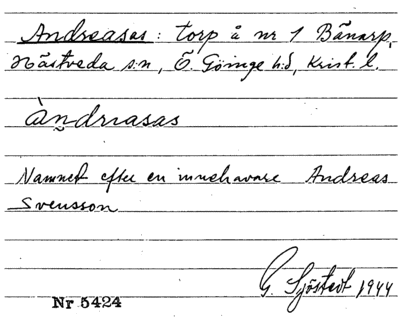 Andreasas: torp å nr 1 Bånarp,
Nästveda sn, Ö. Göinge hd, Krist. l.
àn̰drıasas
Namnet efter en innehavare Andreas
Svensson
G. Sjöstedt 1944
Nr 5424